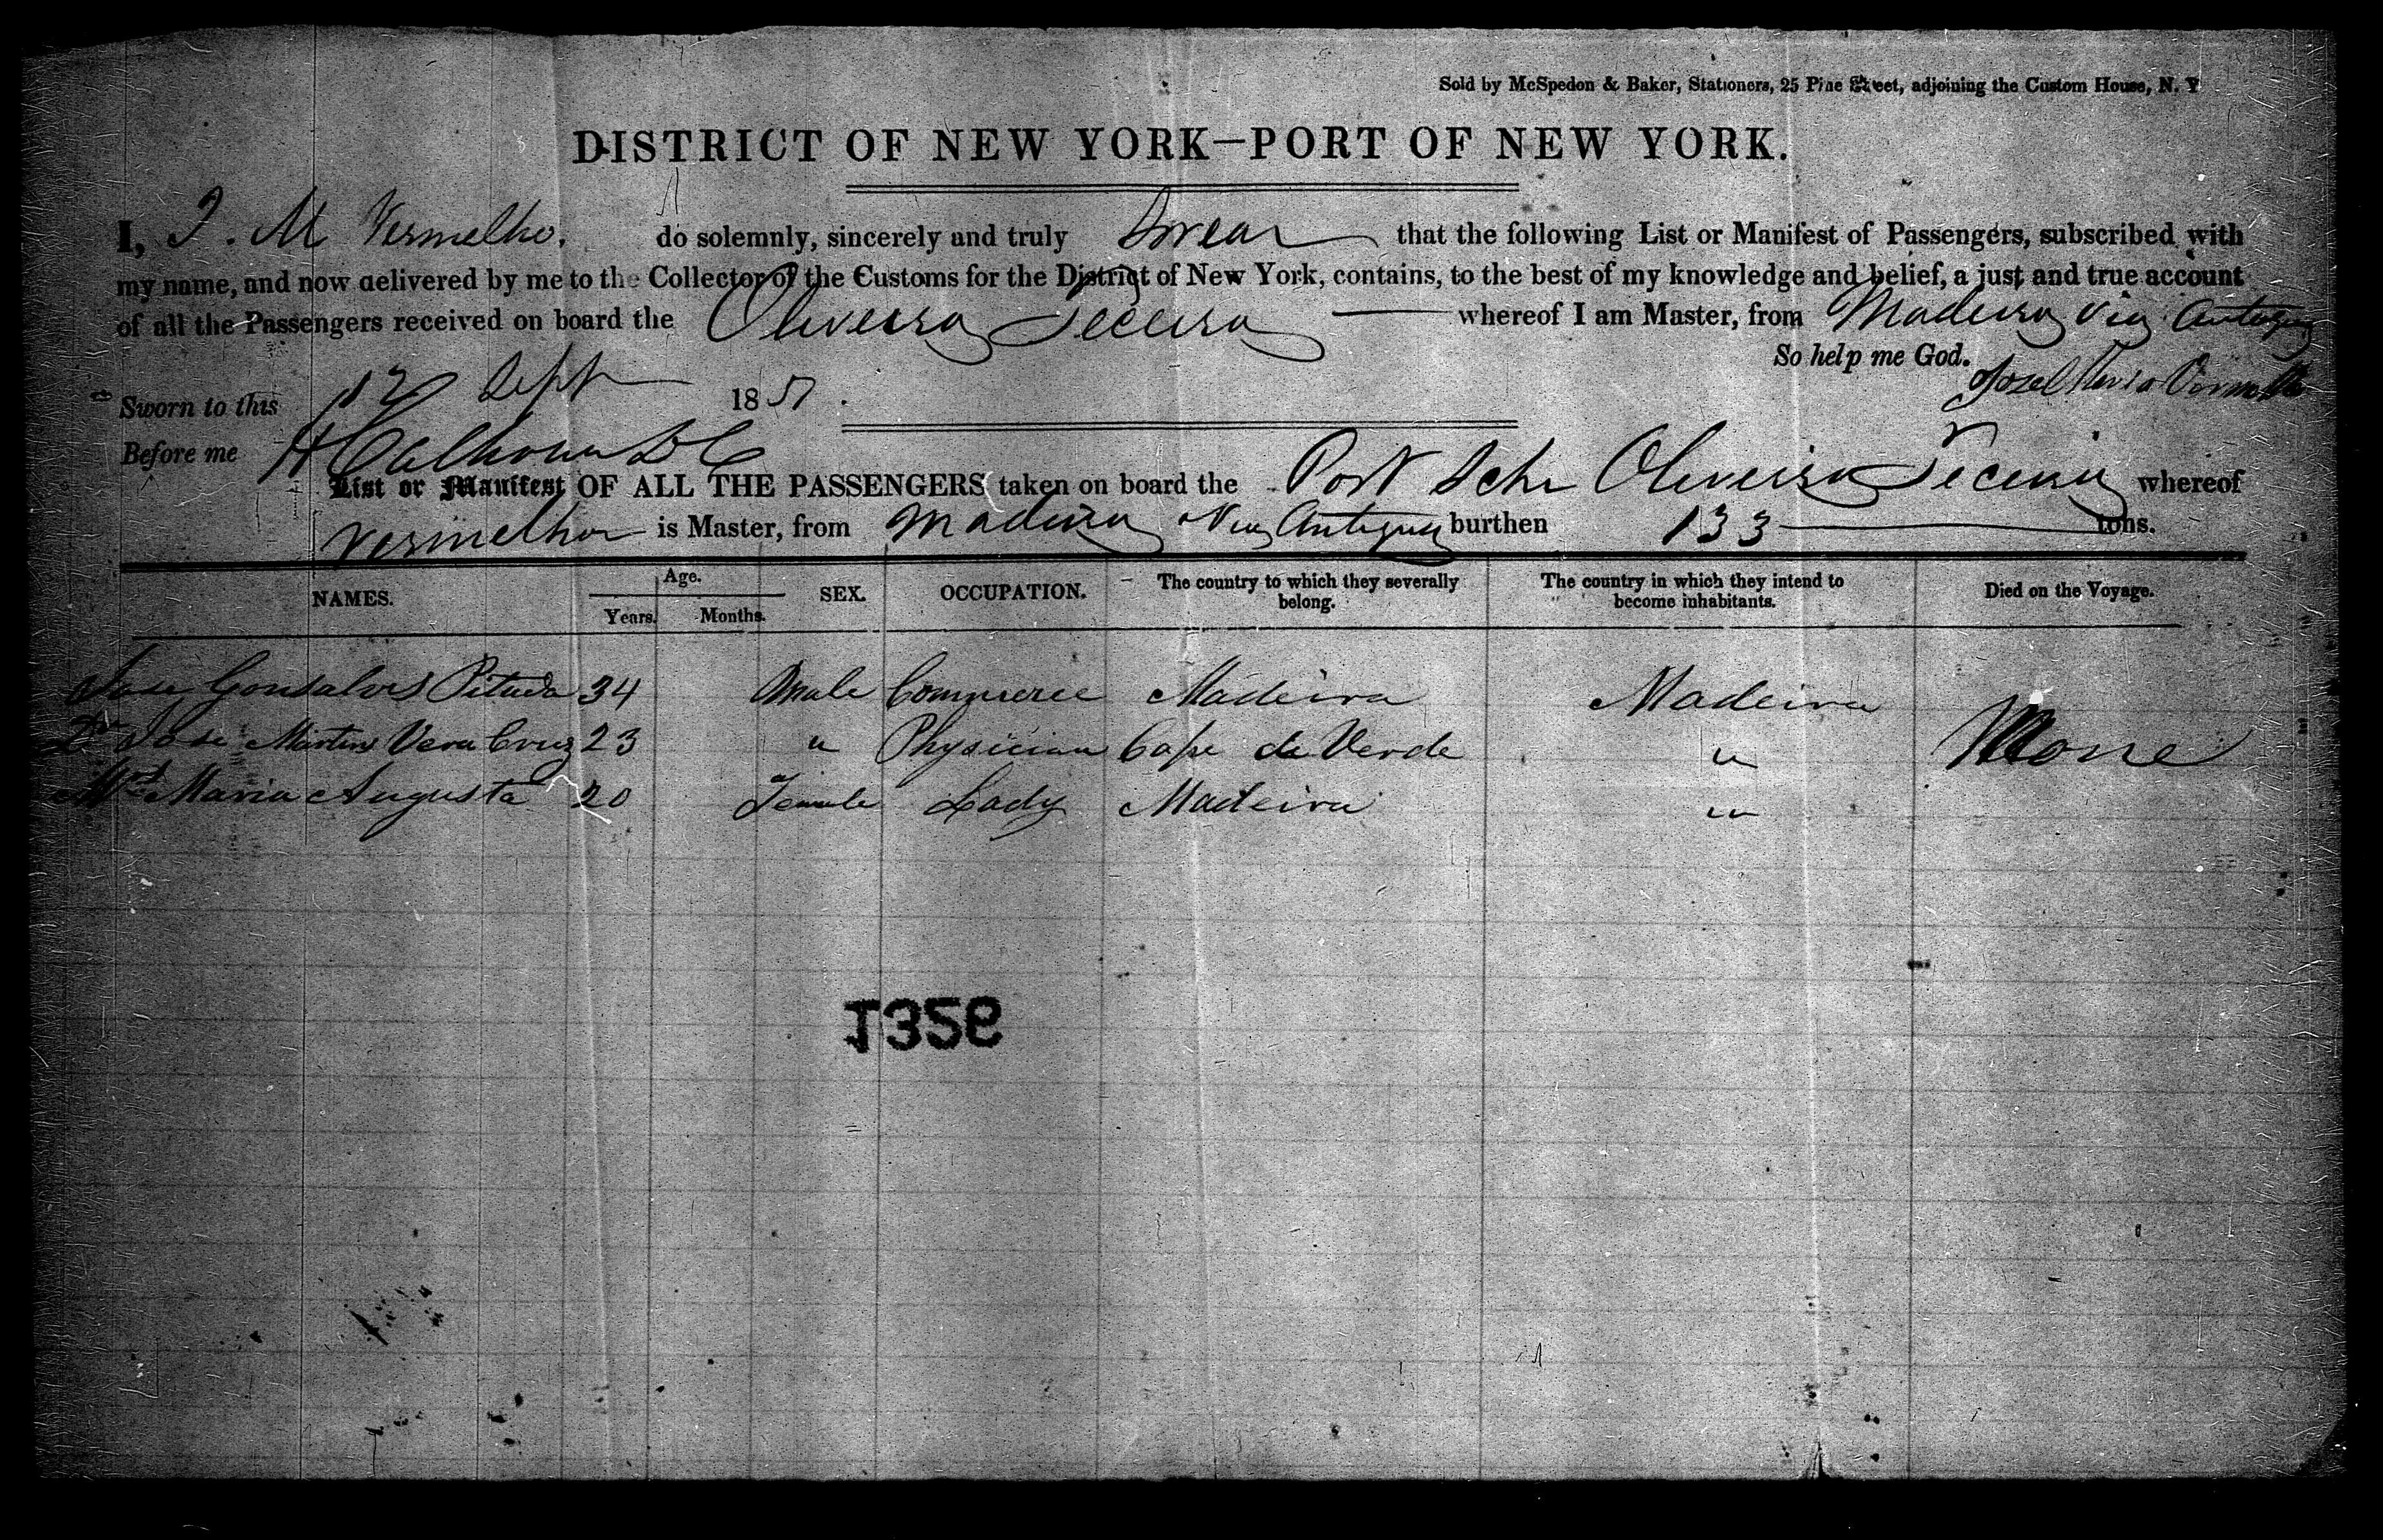 Sold by McSpedon & Baker, Stationers, 25 Pine Street, adjoining the Custom House, N. Y
DISTRICT OF NEW YORK—PORT OF NEW YORK.
I, J. M Vermelho. do solemnly, sincerely and truly Swear that the following List or Manifest of Passengers, subscribed with
my name, and now delivered by me to the Collector of the Customs for the District of New York, contains, to the best of my knowledge and belief, a just and true account
of all the Passengers received on board the Oliveira whereof I am Master, from Madeira Via Antigua
So help me God.
Vermelho
Sworn to this 12 Sept 1851.
Before me H Calhoun D C
List or Manifest OF ALL THE PASSENGERS taken on board the Port Schr Oliveira whereof
Vermelho is Master, from Madeira Via Antigua burthen 133 tons.
NAMES. Age. Years. Months. SEX. OCCUPATION. The country to which they severally belong. The country in which they intend to become inhabitants. Died on the Voyage.
Jose Gonsalves 34 Male Commerce Madeira Madeira
Dr Jose Martins Vera Cruz 23 " Physician Cape de Verde " None
Mrs Maria Augusta 20 Female Lady Madeira "
1356